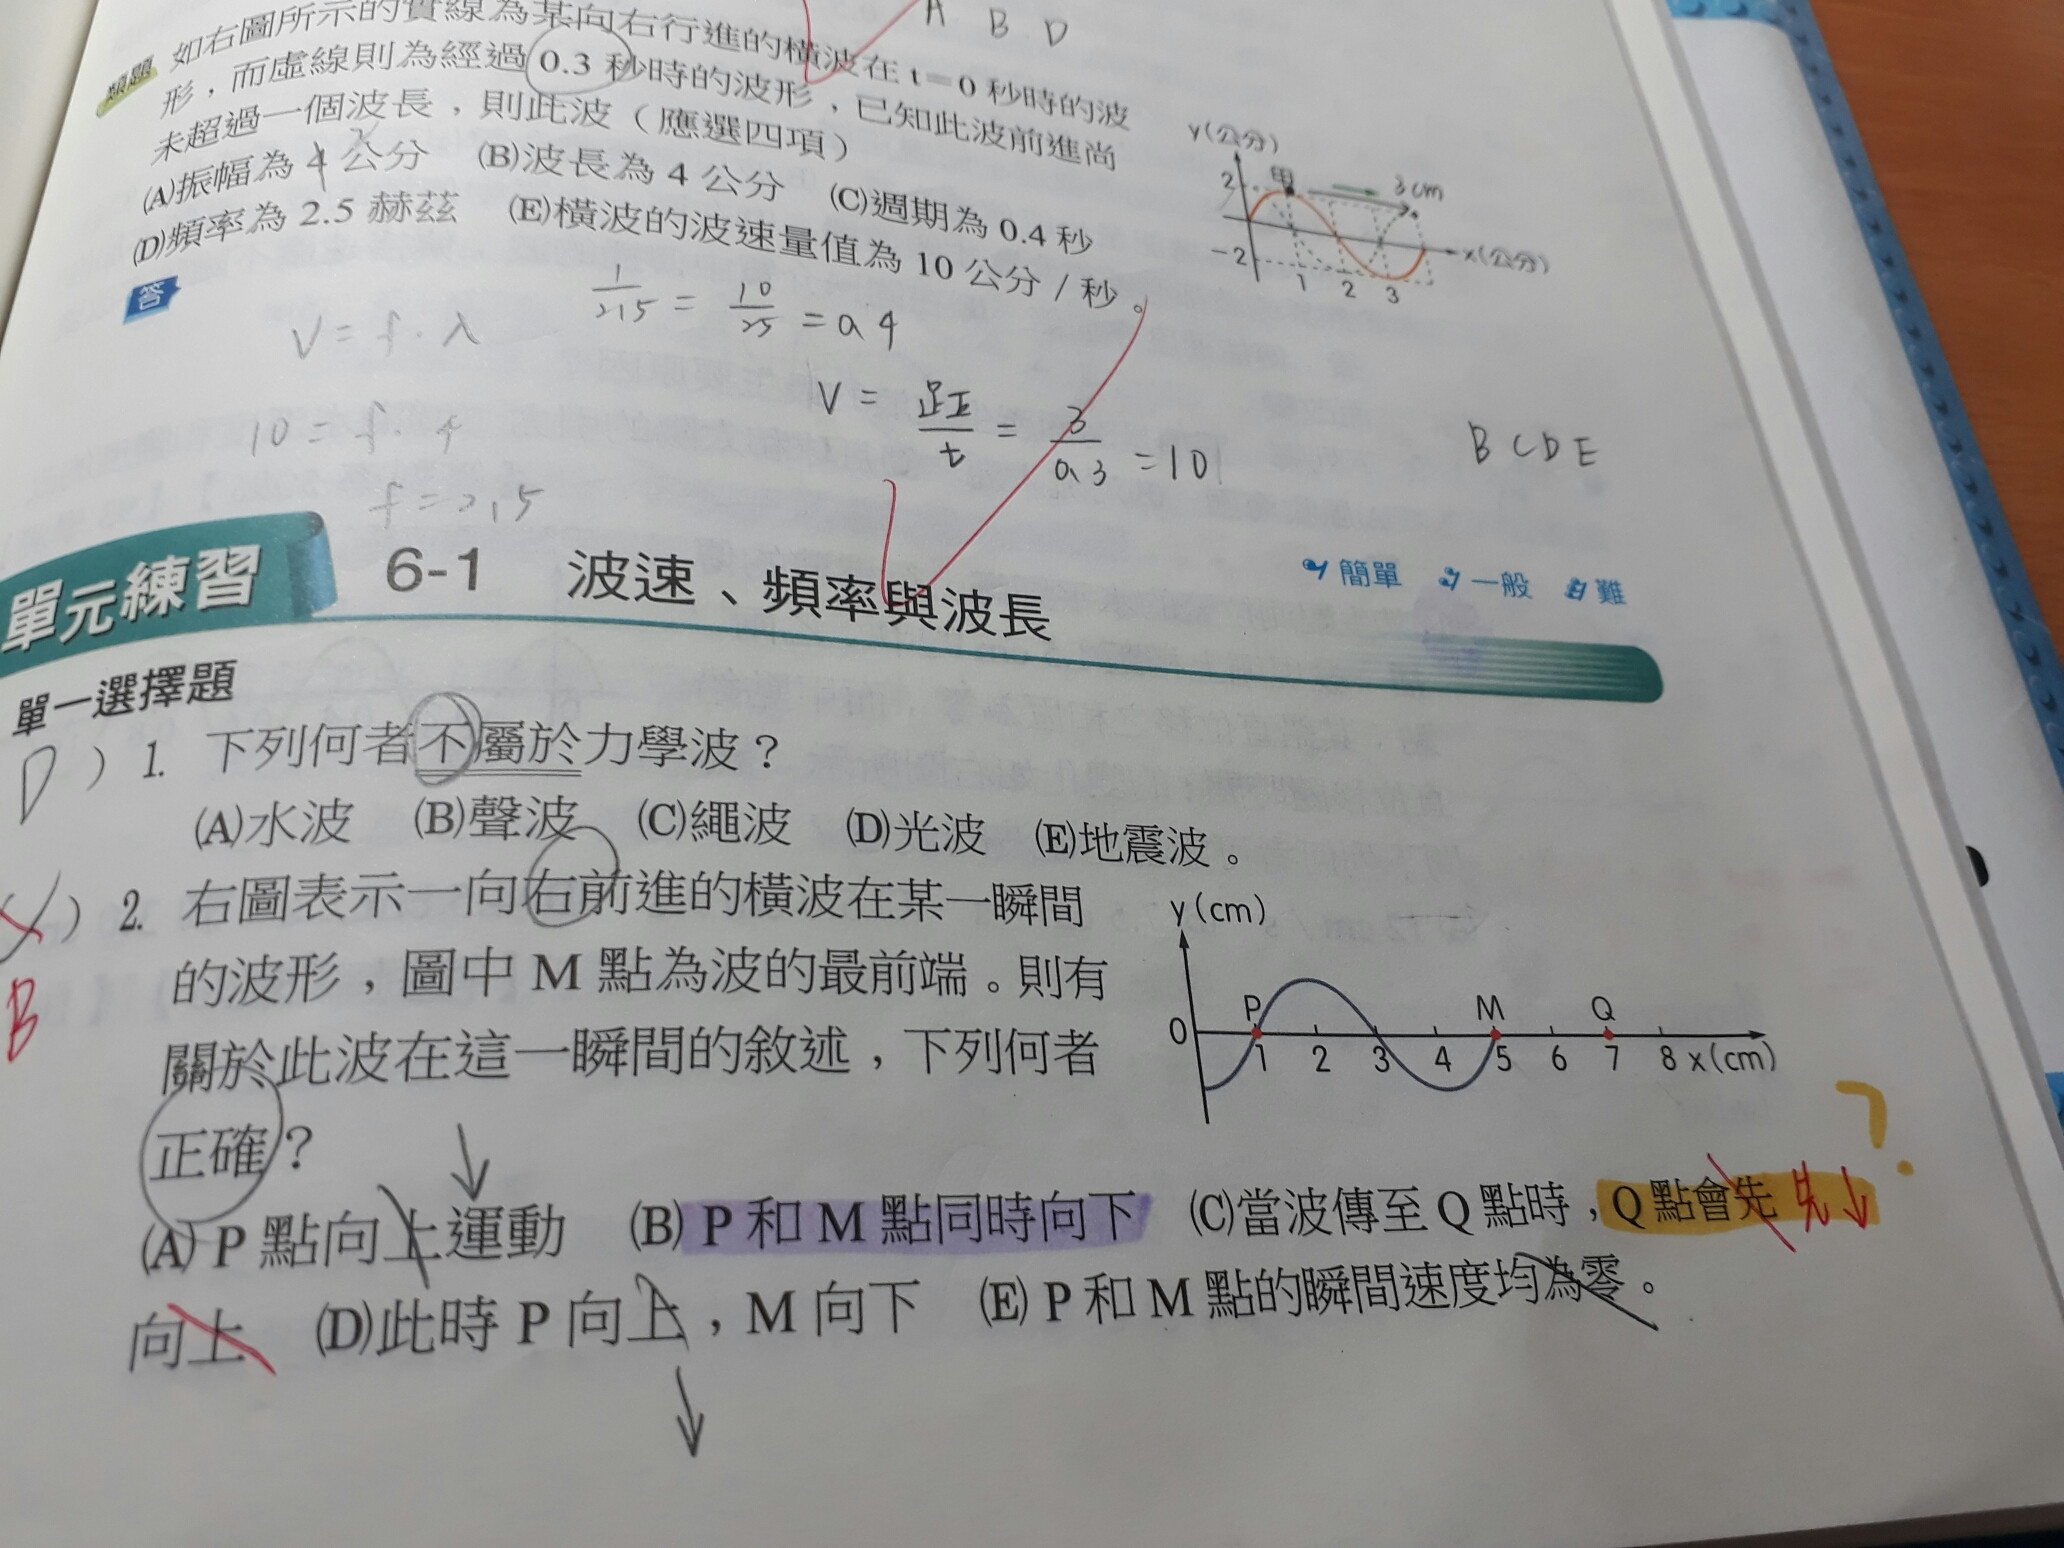 A B D
類題 如右圖所示的實線為某向右行進的橫波在 t=0 秒時的波
形，而虛線則為經過 0.3 秒時的波形，已知此波前進尚
未超過一個波長，則此波（應選四項）
2
(A)振幅為 4 公分 (B)波長為 4 公分 (C)週期為 0.4 秒
(D)頻率為 2.5 赫茲 (E)橫波的波速量值為 10 公分／秒。
y(公分)
2 甲 3cm
-2 x(公分)
1 2 3
答
V = f · λ
1/2.5 = 10/25 = 0.4
10 = f · 4
V = 距/t = 3/0.3 = 10
B C D E
f = 2.5
單元練習 6-1 波速、頻率與波長
簡單 一般 難
單一選擇題
D ) 1. 下列何者不屬於力學波？
(A)水波 (B)聲波 (C)繩波 (D)光波 (E)地震波。
) 2. 右圖表示一向右前進的橫波在某一瞬間
B
的波形，圖中 M 點為波的最前端。則有
關於此波在這一瞬間的敘述，下列何者
正確？
y(cm)
P M Q
0 1 2 3 4 5 6 7 8 x(cm)
?
(A) P 點向上運動 (B) P 和 M 點同時向下 (C)當波傳至 Q 點時，Q 點會先 先↓
向上 (D)此時 P 向上，M 向下 (E) P 和 M 點的瞬間速度均為零。